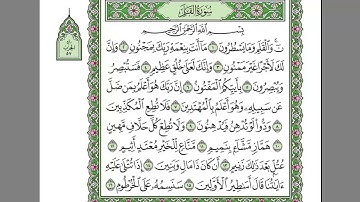 سُورَةُ القَلَمِ
بِسْمِ اللَّهِ الرَّحْمَٰنِ الرَّحِيمِ
نٓ ۚ وَالْقَلَمِ وَمَا يَسْطُرُونَ ١ مَا أَنتَ بِنِعْمَةِ رَبِّكَ بِمَجْنُونٍ ٢ وَإِنَّ
لَكَ لَأَجْرًا غَيْرَ مَمْنُونٍ ٣ وَإِنَّكَ لَعَلَىٰ خُلُقٍ عَظِيمٍ ٤ فَسَتُبْصِرُ
وَيُبْصِرُونَ ٥ بِأَييِّكُمُ الْمَفْتُونُ ٦ إِنَّ رَبَّكَ هُوَ أَعْلَمُ بِمَن ضَلَّ
عَن سَبِيلِهِ وَهُوَ أَعْلَمُ بِالْمُهْتَدِينَ ٧ فَلَا تُطِعِ الْمُكَذِّبِينَ
٨ وَدُّوا لَوْ تُدْهِنُ فَيُدْهِنُونَ ٩ وَلَا تُطِعْ كُلَّ حَلَّافٍ مَّهِينٍ
١٠ هَمَّازٍ مَّشَّاءٍ بِنَمِيمٍ ١١ مَّنَّاعٍ لِّلْخَيْرِ مُعْتَدٍ أَثِيمٍ ١٢
عُتُلٍّ بَعْدَ ذَٰلِكَ زَنِيمٍ ١٣ أَن كَانَ ذَا مَالٍ وَبَنِينَ ١٤ إِذَا تُتْلَىٰ عَلَيْهِ
ءَايَٰتُنَا قَالَ أَسَٰطِيرُ الْأَوَّلِينَ ١٥ سَنَسِمُهُ عَلَى الْخُرْطُومِ ١٦